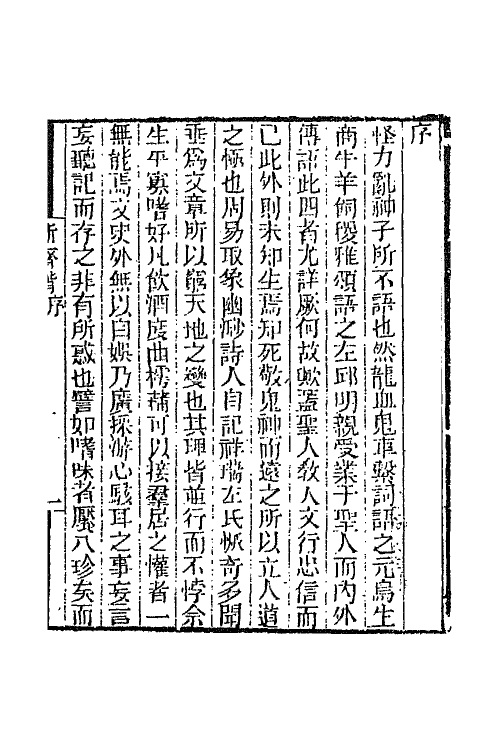 序
怪力亂神子所不語也然龍血鬼車繫詞語之元鳥生
商牛羊飼稷雅頌語之左邱明親受業于聖人而內外
傳語此四者尤詳厥何故歟蓋聖人教人文行忠信而
已此外則未知生焉知死敬鬼神而遠之所以立人道
之極也周易取象幽渺詩人自記祥瑞左氏恢奇多聞
垂爲文章所以窮天地之變也其理皆並行而不悖余
生平寡嗜好凡飲酒度曲樗蒱可以接羣居之懽者一
無能焉文史外無以自娛乃廣採游心駭耳之事妄言
妄聽記而存之非有所惑也譬如嗜味者饜八珍矣而
新齊諧序
一